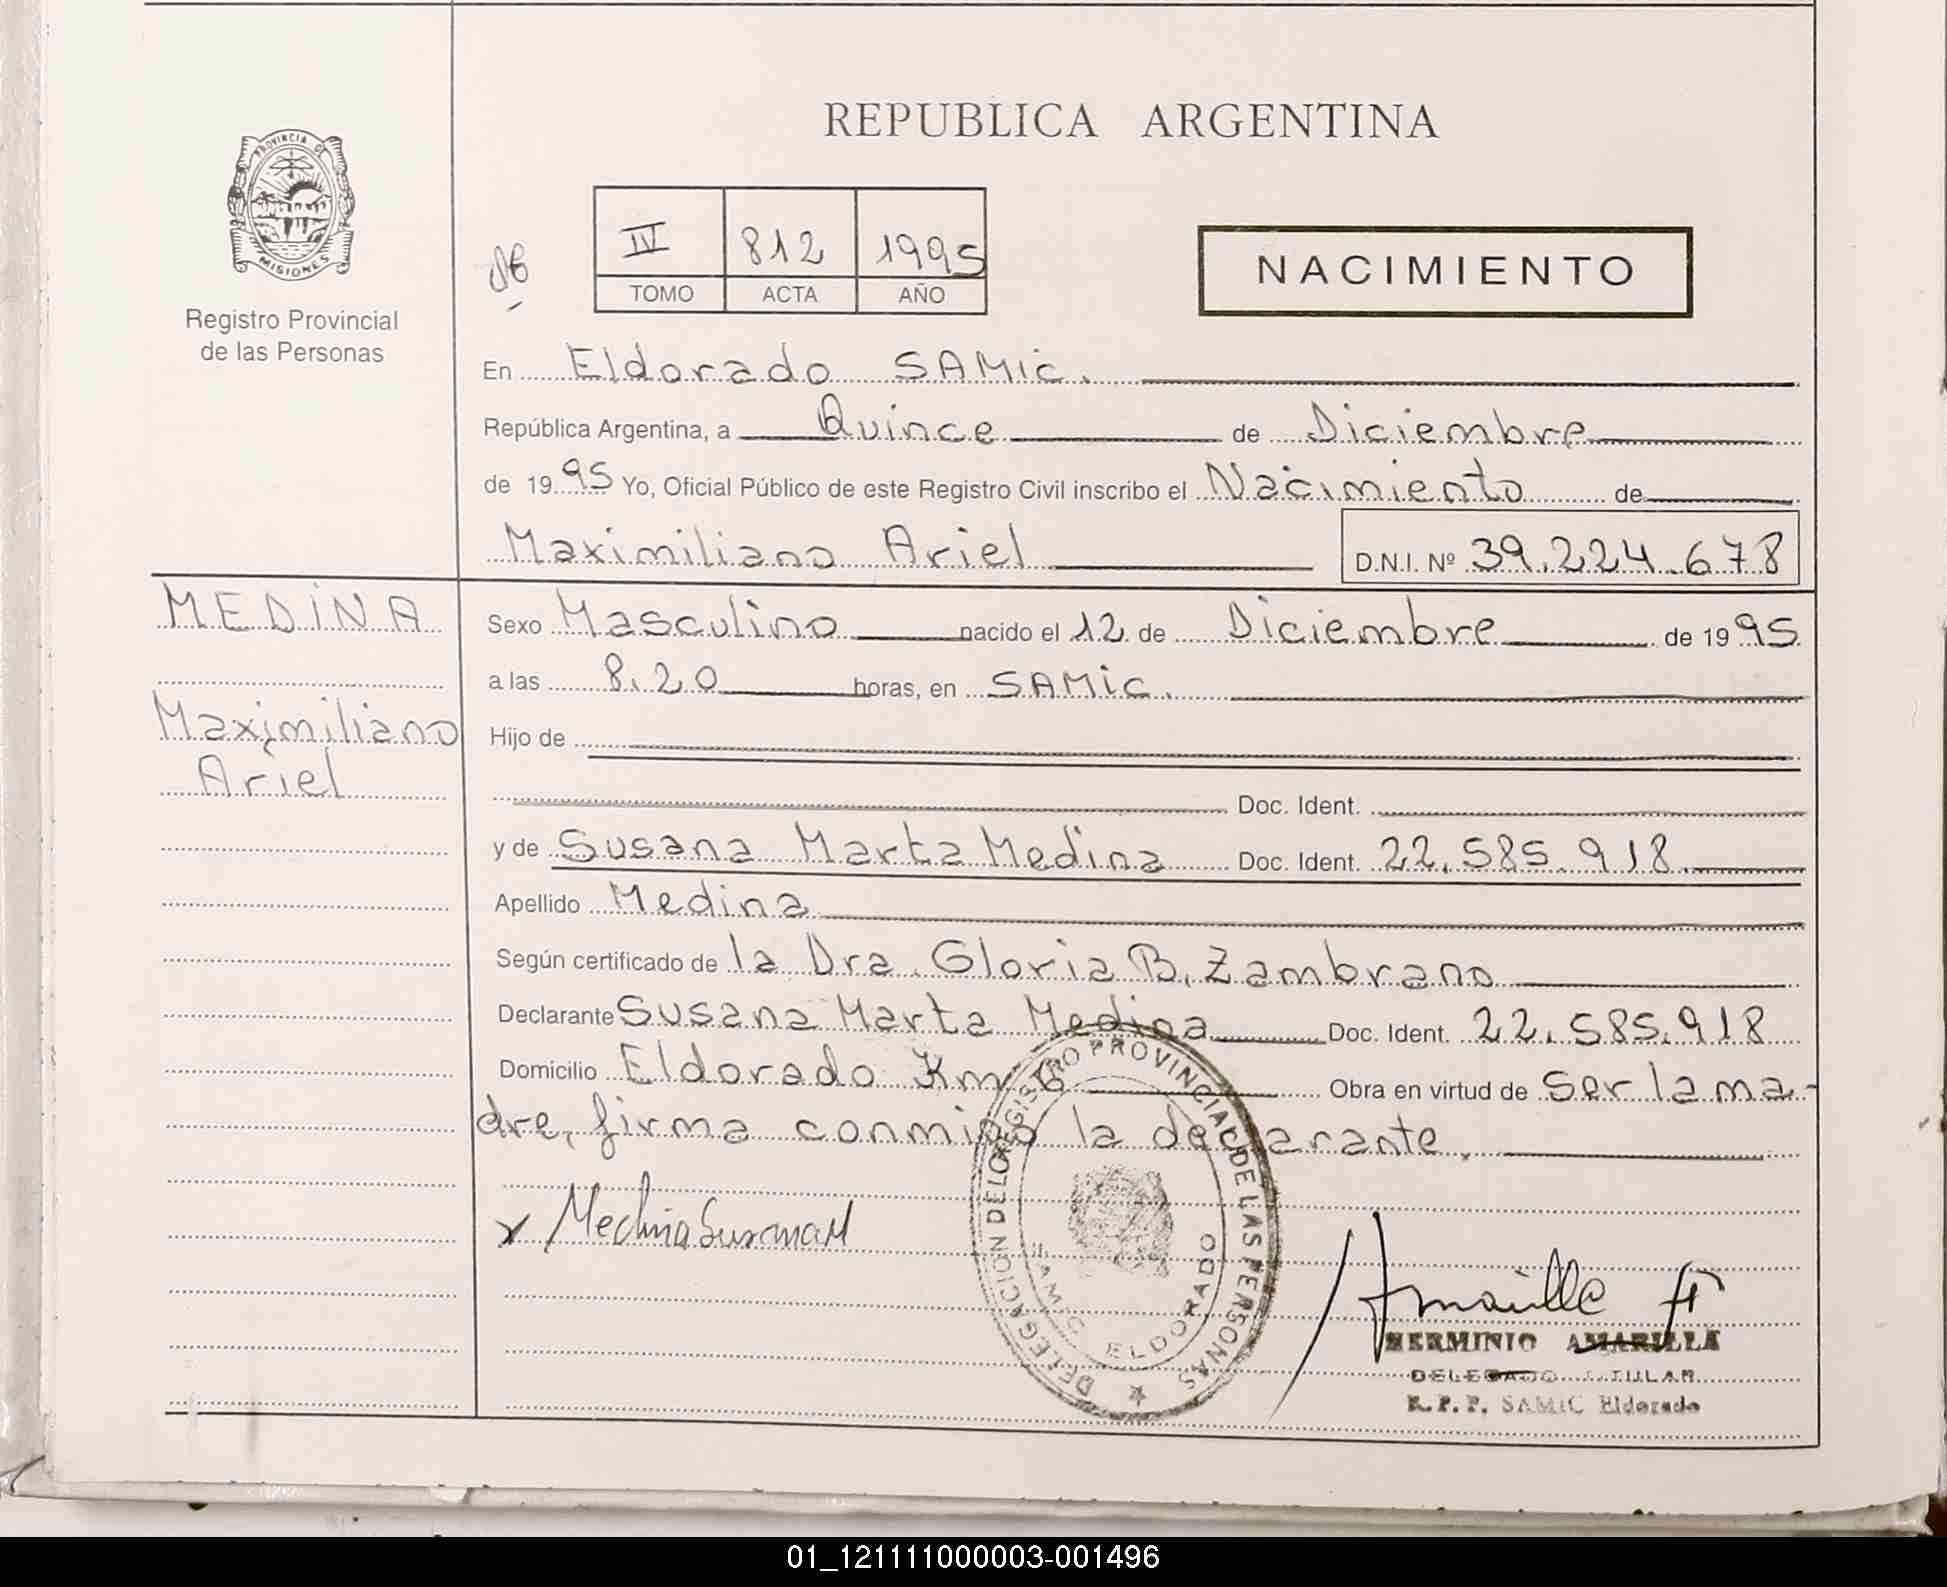 REPUBLICA ARGENTINA
PROVINCIA DE
MISIONES
Registro Provincial
de las Personas
IV 812 1995
TOMO ACTA AÑO
NACIMIENTO
En Eldorado SAMic.
República Argentina, a Quince de Diciembre
de 1995 Yo, Oficial Público de este Registro Civil inscribo el Nacimiento de
Maximiliano Ariel D.N.I. Nº 39.224.678
MEDINA
Maximiliano
Ariel
Sexo Masculino nacido el 12 de Diciembre de 1995
a las 8.20 horas, en SAMic.
Hijo de
Doc. Ident.
y de Susana Marta Medina Doc. Ident. 22.585.918
Apellido Medina
Según certificado de la Dra. Gloria B. Zambrano
Declarante Susana Marta Medina Doc. Ident. 22.585.918
Domicilio Eldorado Km 6 Obra en virtud de ser la ma-
dre, firma conmigo la declarante.
x Medina Susana M
DELEGACION DEL REGISTRO PROVINCIAL DE LAS PERSONAS
SAMIC ELDORADO
Amarilla H
HERMINIO AMARILLA
DELEGADO TITULAR
R. P. P. SAMIC Eldorado
01_121111000003-001496